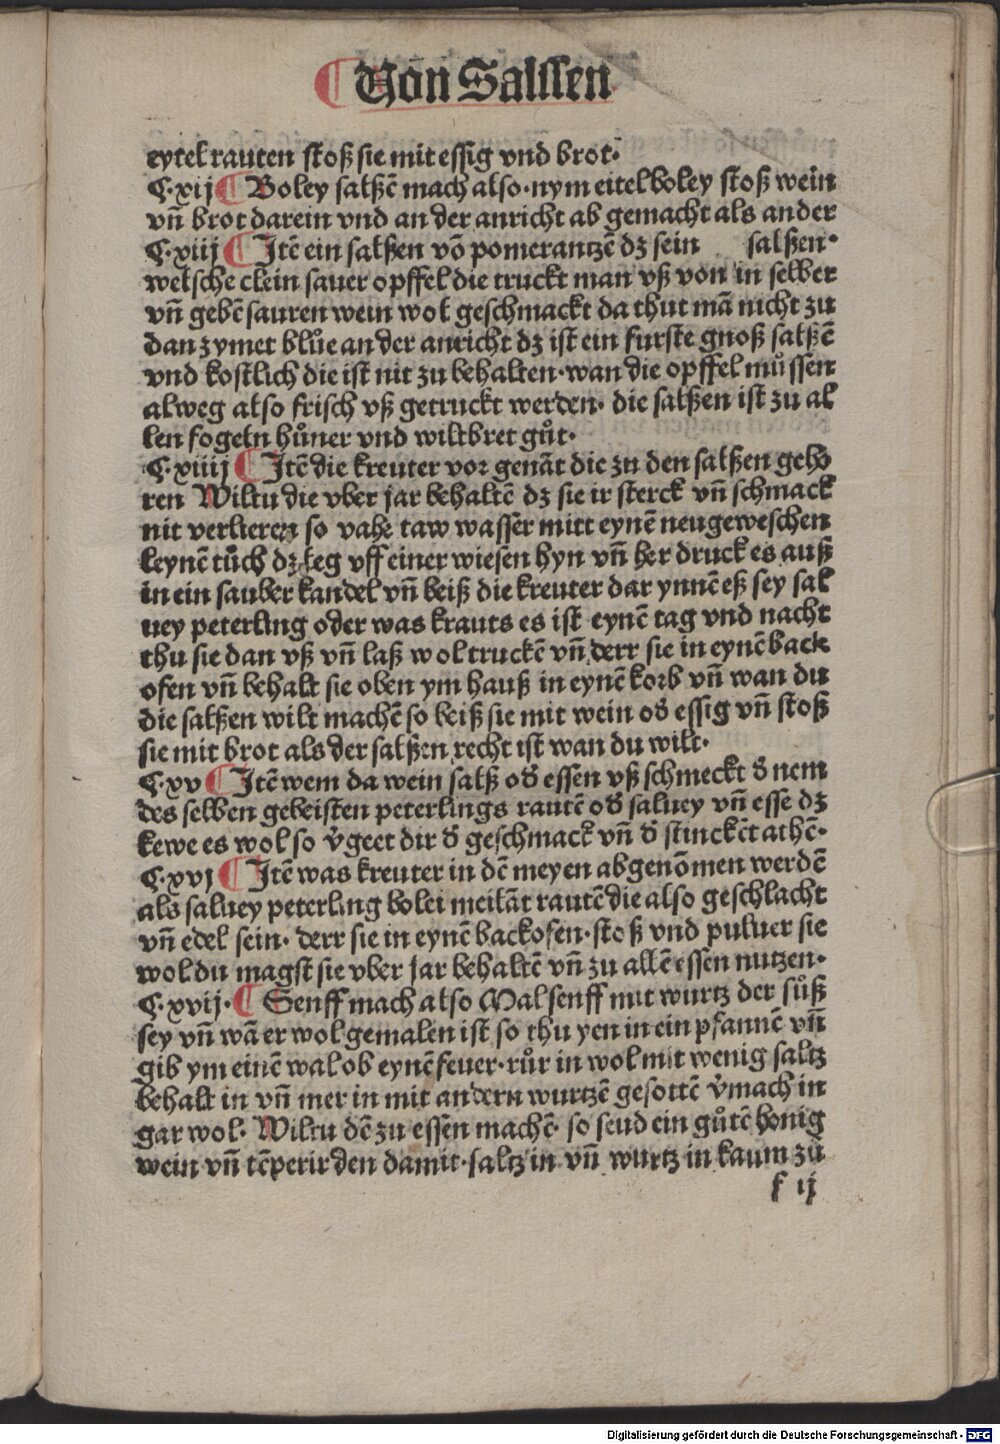 ¶ Von Salssen
eytel rauten stoß sie mit essig vnd brot·
¶·xij ¶ Boley salßē mach also·nym eitel boley stoß wein
vn̄ brot darein vnd an der anricht ab gemacht als ander
¶·xiij ¶ Jtē ein salßen vō pomerantzē dz sein salßen·
welsche clein sauer opffel die truckt man vß von in selber
vn̄ gebē sauren wein wol geschmackt da thut mā nicht zu
dan zymet blůe an der anricht dz ist ein furste gnoß salßē
vnd kostlich die ist nit zu behalten·wan die opffel můssen
alweg also frisch vß getruckt werden· die salßen ist zu al
len fogeln hůner vnd wiltbret gůt·
¶·xiiij ¶ Jtē die kreuter vor genāt die zu den salßen geho
ren Wiltu die vber jar behaltē dz sie ir sterck vn̄ schmack
nit verlieren so vahe taw wasser mitt eynē neugeweschen
leynē tůch dz leg vff einer wiesen hyn vn̄ her druck es auß
in ein sauber kandel vn̄ beiß die kreuter dar ynnē eß sey sal
uey peterling oder was krauts es ist eynē tag vnd nacht
thu sie dan vß vn̄ laß wol truckē vn̄ derr sie in eynē back
ofen vn̄ behalt sie oben ym hauß in eynē korb vn̄ wan du
die salßen wilt machē so beiß sie mit wein od̕ essig vn̄ stoß
sie mit brot als der salßen recht ist wan du wilt·
¶·xv ¶ Jtē wem da wein salß od̕ essen vß schmeckt d̕ nem
des selben gebeisten peterlings rautē od̕ saluey vn̄ esse dz
kewe es wol so v̕geet dir d̕ geschmack vn̄ d̕ stinckēt athē·
¶·xvj ¶ Jtē was kreuter in dē meyen abgenōmen werdē
als saluey peterling bolei meilāt rautē die also geschlacht
vn̄ edel sein· derr sie in eynē backofen·stoß vnd puluer sie
wol du magst sie vber jar behaltē vn̄ zu allē essen nutzen·
¶·xvij· ¶ Senff mach also Mal senff mit wurtz der sůß
sey vn̄ wā er wol gemalen ist so thu yen in ein pfannē vn̄
gib ym einē wal ob eynē feuer·růr in wol mit wenig saltz
behalt in vn̄ mer in mit andern wurtzē gesottē v̕mach in
gar wol· Wiltu dē zu essen machē· so seud ein gůtē honig
wein vn̄ tēperir den damit·saltz in vn̄ wurtz in kaum zů
f ij
Digitalisierung gefördert durch die Deutsche Forschungsgemeinschaft - DFG